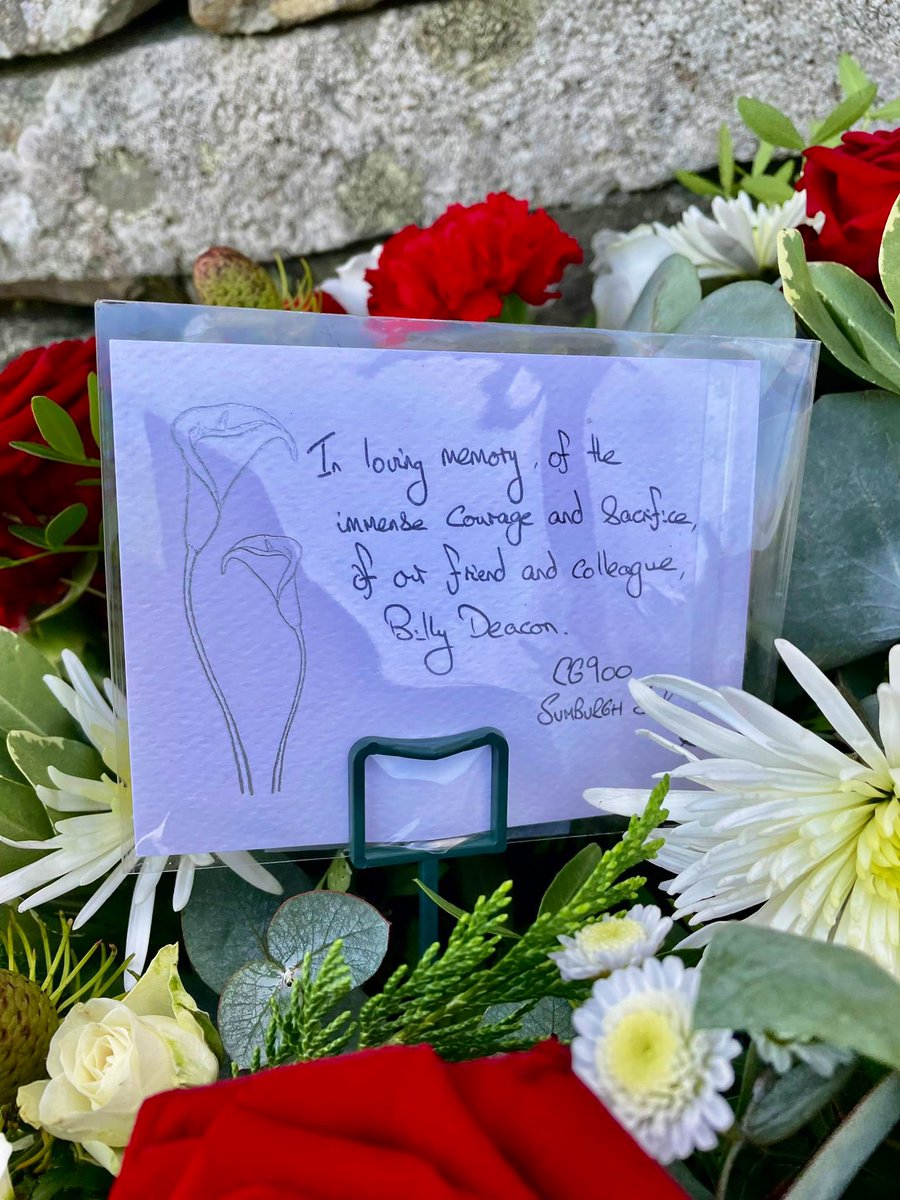 In loving memory, of the
immense Courage and Sacrifice,
of our friend and colleague,
Billy Deacon.
CG900
SUMBURGH